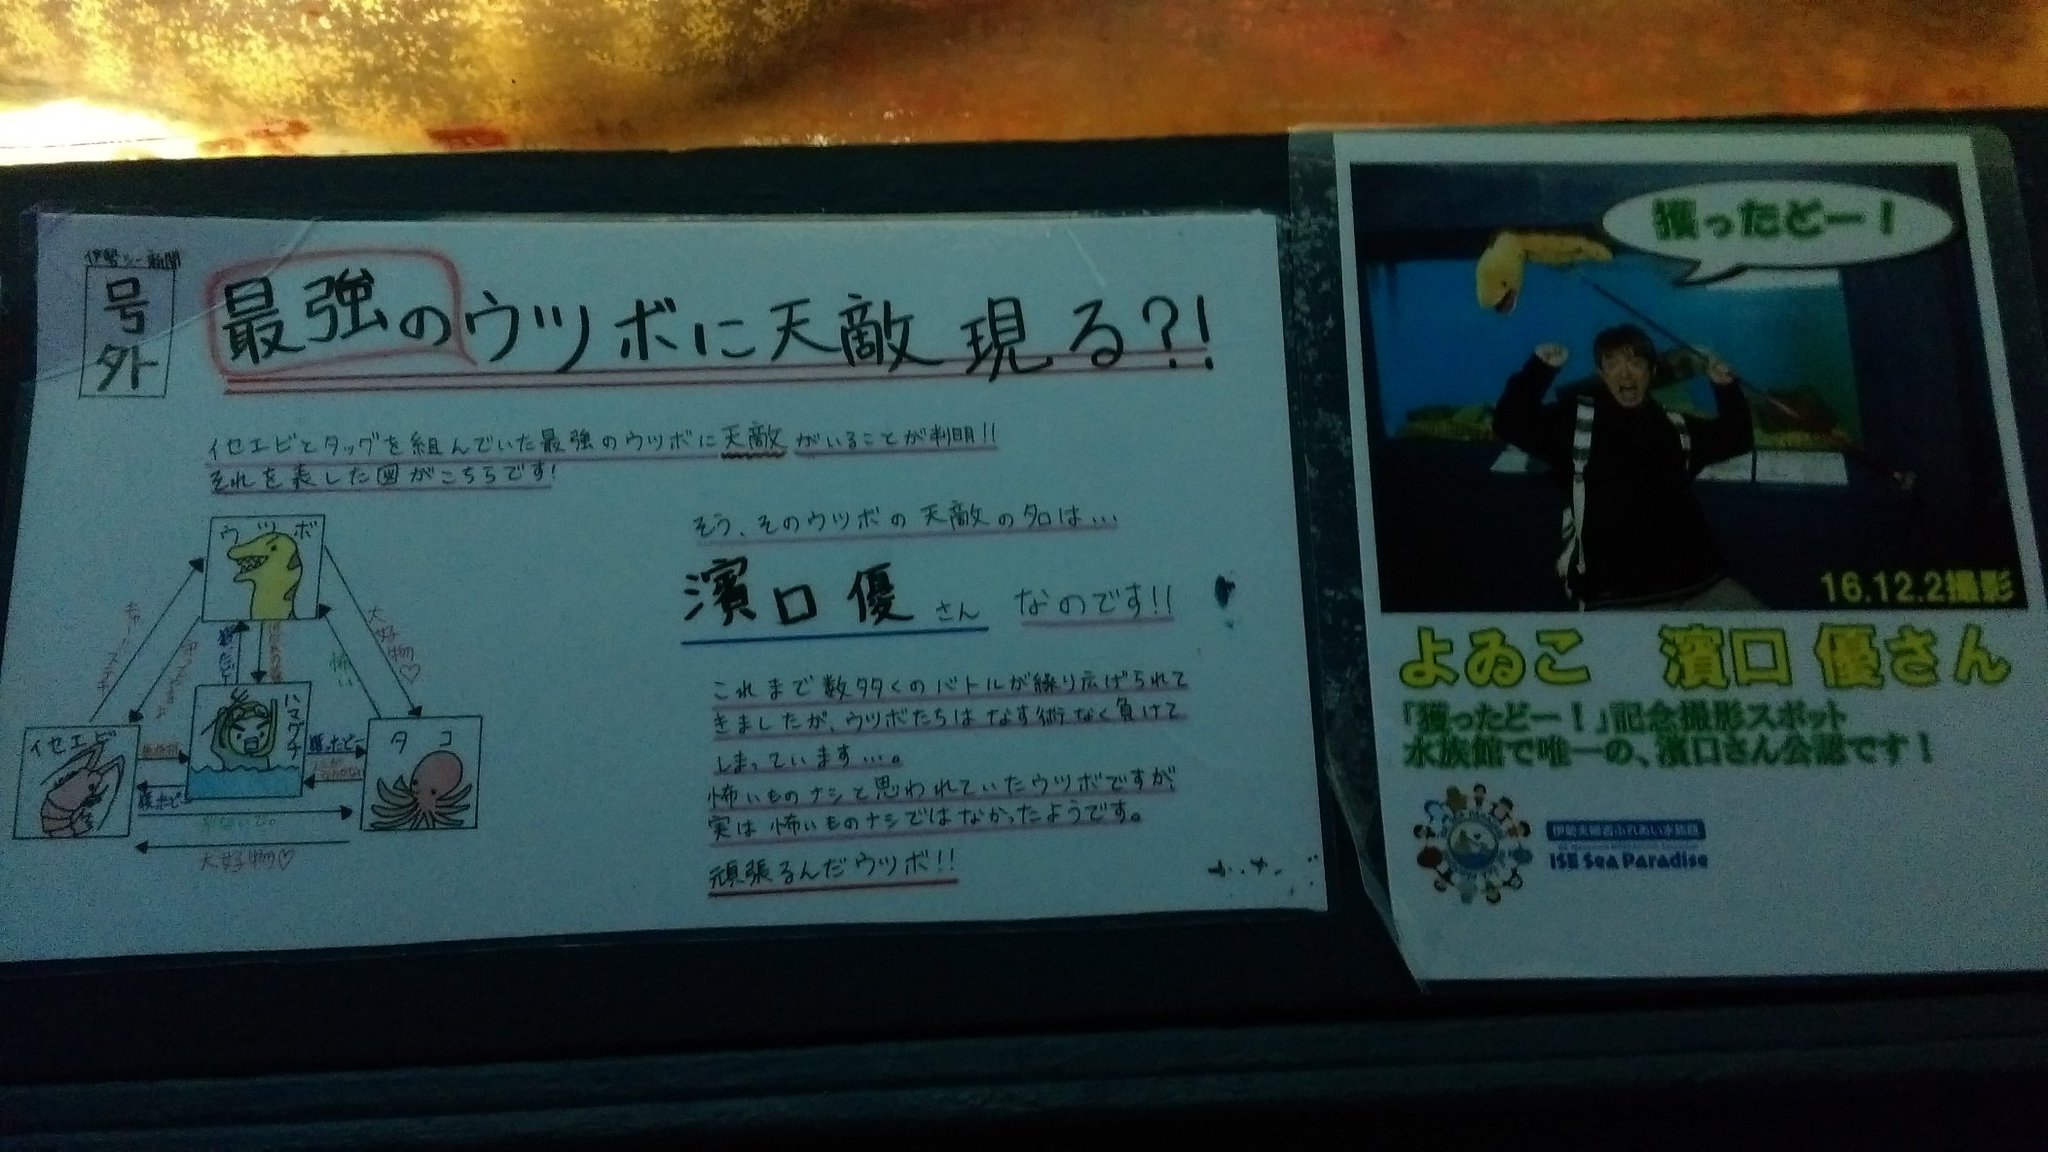 伊勢シー新聞
号外
最強のウツボに天敵現る?!
イセエビとタッグを組んでいた最強のウツボに天敵がいることが判明!!
それを表した図がこちらです!
ウツボ
大好物♡
怖い
イセエビ
ハマグチ
獲ったどー
タコ
大好物♡
そう、そのウツボの天敵の名は…
濱口優さん なのです!!
これまで数多くのバトルが繰り広げられて
きましたが、ウツボたちはなす術なく負けて
しまっています…。
怖いものナシと思われていたウツボですが
実は怖いものナシではなかったようです。
頑張るんだウツボ!!
獲ったどー!
16.12.2撮影
よゐこ 濱口 優さん
「獲ったどー!」記念撮影スポット
水族館で唯一の、濱口さん公認です!
伊勢夫婦岩ふれあい水族館
ISE Sea Paradise